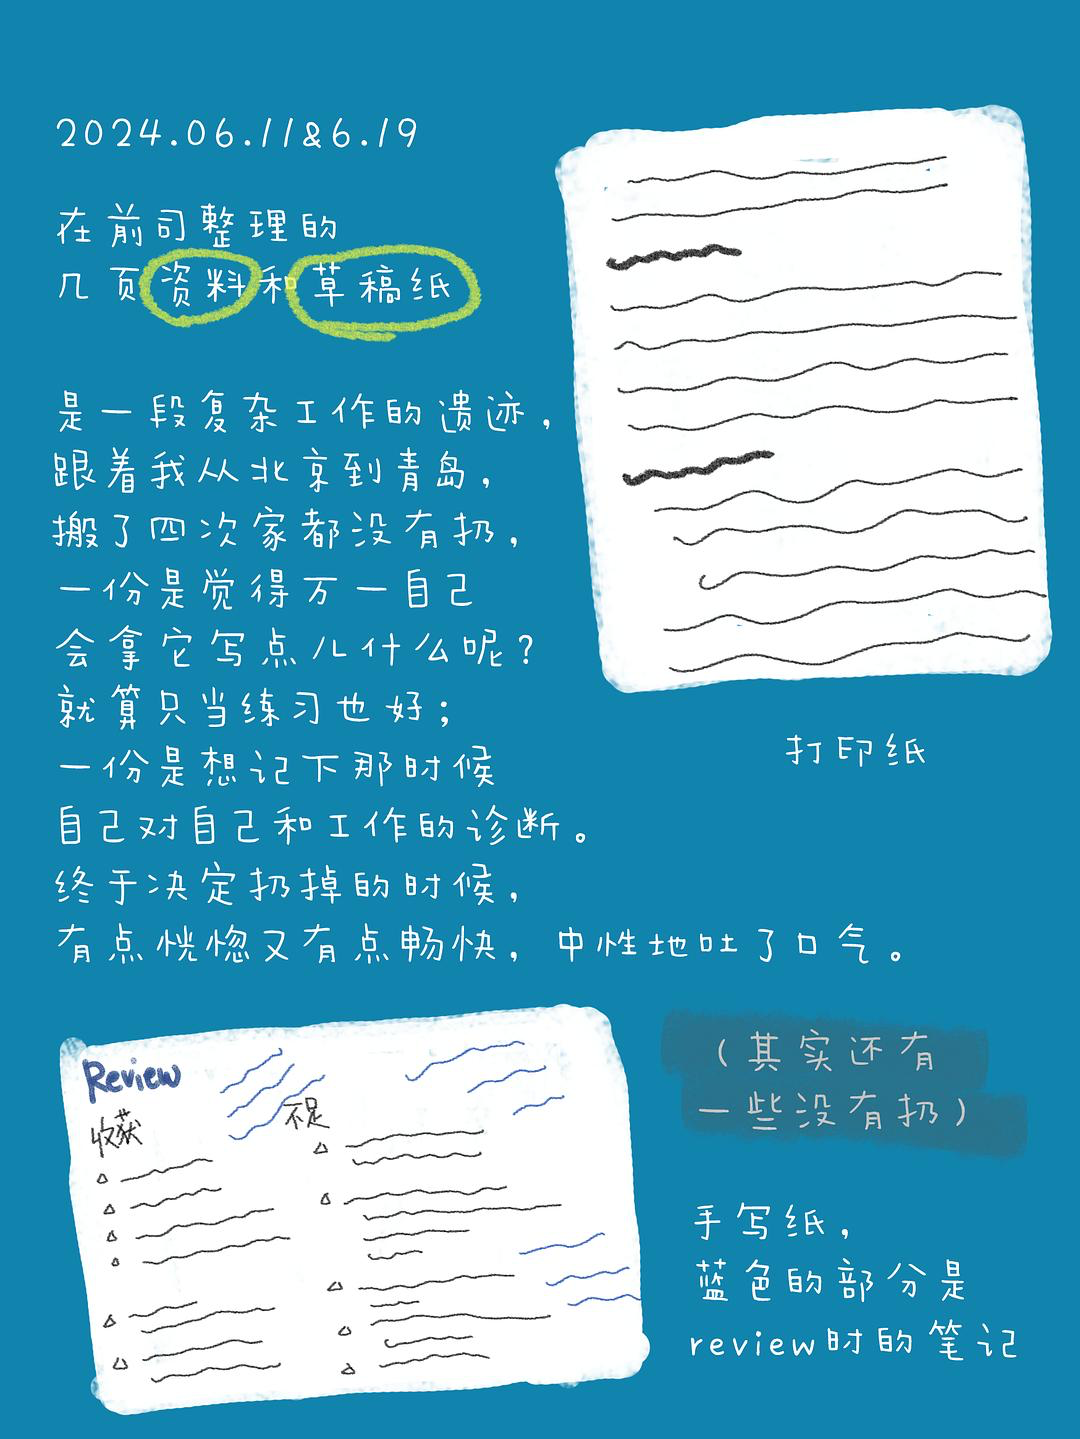 2024.06.11&6.19
在前司整理的
几页资料和草稿纸
是一段复杂工作的遗迹，
跟着我从北京到青岛，
搬了四次家都没有扔，
一份是觉得万一自己
会拿它写点儿什么呢？
就算只当练习也好；
一份是想记下那时候
自己对自己和工作的诊断。
终于决定扔掉的时候，
有点恍惚又有点畅快，中性地吐了口气。
打印纸
Review
收获
不足
（其实还有
一些没有扔）
手写纸，
蓝色的部分是
review时的笔记